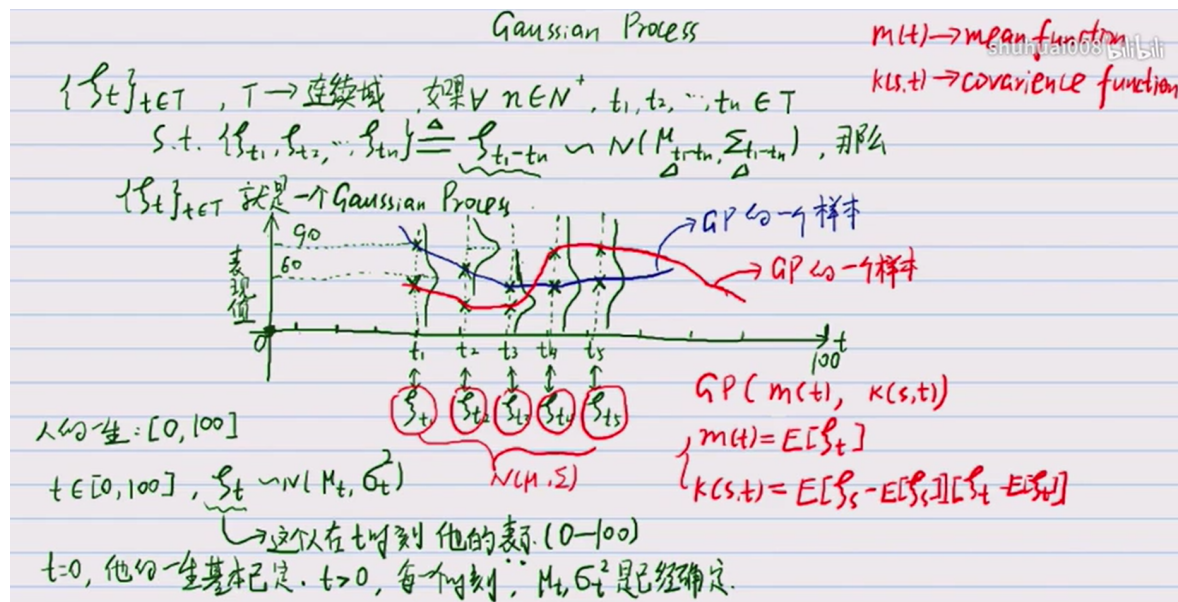 Gaussian Process
m(t)→mean function
shuhuai008 bilibili
k(s,t)→covarience function
{ξt}t∈T , T→连续域 , 如果∀ n∈N⁺, t₁,t₂,…,tn ∈T
s.t. {ξt₁,ξt₂,…,ξtn} ≜ ξt₁-tn ~ N(μt₁-tn, Σt₁-tn) , 那么
{ξt}t∈T 就是一个Gaussian Process.
GP的一个样本
GP的一个样本
90
60
表现值
0
t₁ t₂ t₃ t₄ t₅
100
t
ξt₁ ξt₂ ξt₃ ξt₄ ξt₅
N(μ,Σ)
GP( m(t), k(s,t))
m(t)=E[ξt]
k(s,t)=E[ξs-E[ξs]][ξt-E[ξt]]
人的一生:[0,100]
t∈[0,100] , ξt ~N(μt,σt²)
→这个人在t时刻 他的表示(0—100)
t=0, 他的一生基本已定. t>0, 每个时刻, μt,σt²是已经确定.